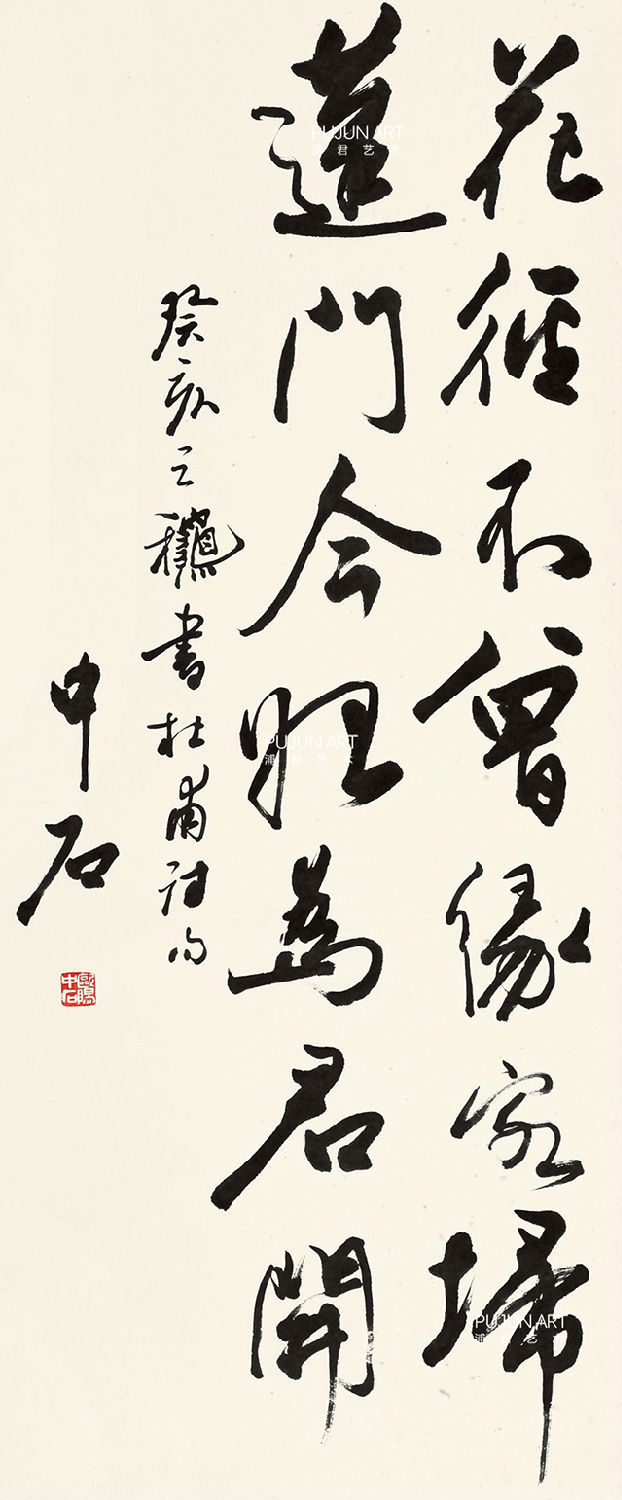 花徑不曾緣客埽
蓬門今始為君開
癸亥之龝書杜甫詩句
中石
歐陽
中石
PUJUN ART
浦君艺术
PUJUN ART
浦君艺术
PUJUN ART
浦君艺术